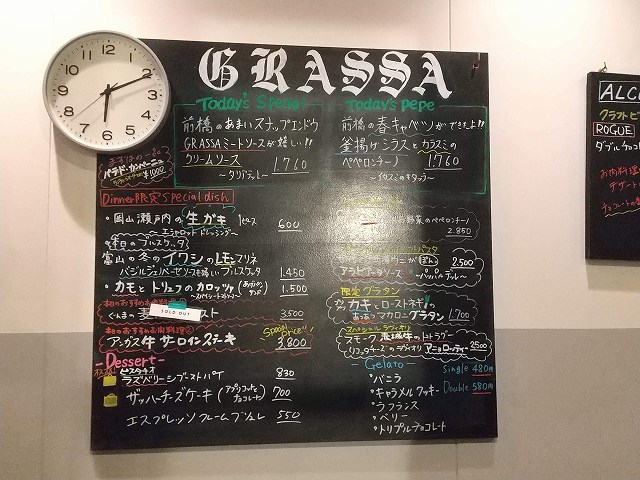 GRASSA
Today's Special
前橋のあまいスナップエンドウ
GRASSAミートソースが嬉しい!!
クリームソース 1760
～タリアテッレ～
Today's pepe
前橋の春キャベツができたよ!!
釜揚げシラスとカラスミの
ペペロンチーノ 1,760
¥1000
Dinner限定 special dish
・岡山瀬戸内の生ガキ 1ピース 600
～エシャロットドレッシング～
本日のブルスケッタ
富山の氷のイワシのレモンマリネ
ブルスケッタ 1.450
・カモとトリュフのカロッツァ 1.500
SOLD OUT
3500
本日のおすすめお肉料理②
アンガス牛サーロインステーキ
Special price!!
3,800
野菜のペペロンチーノ
2.850
2.500
アラビアータソース ～パッパルデッレ～
限定グラタン
カキとローストネギの
マカロニグラタン 1,700
スペシャルラヴィオリ
リコッタチーズのラヴィオリ 2500
Dessert
ピスタチオ
ラズベリーシブーストパイ 830
ザッハーチーズケーキ (アプリコットとチョコレート) 700
エスプレッソクレームブリュレ 550
Gelato
Single 480円
Double 580円
・バニラ
・キャラメルクッキー
・ラフランス
・ベリー
・トリプルチョコレート
12
1
2
3
4
5
6
7
8
9
10
11
ALCO
クラフトビ
ROGUE
ダブルチョコ
お肉料理
デザート
チョコレートの